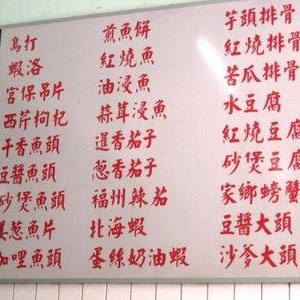 烏打
蝦洛
宮保吊片
西芹枸杞
干香魚頭
豆醬魚頭
砂煲魚頭
姜葱魚片
咖哩魚頭
煎魚餅
紅燒魚
油浸魚
蒜茸浸魚
暹香茄子
葱香茄子
福州辣茄
北海蝦
蛋絲奶油蝦
芋頭排骨
紅燒排骨
苦瓜排骨
水豆腐
紅燒豆腐
砂煲豆腐
家鄉螃蟹
豆醬大頭
沙爹大頭